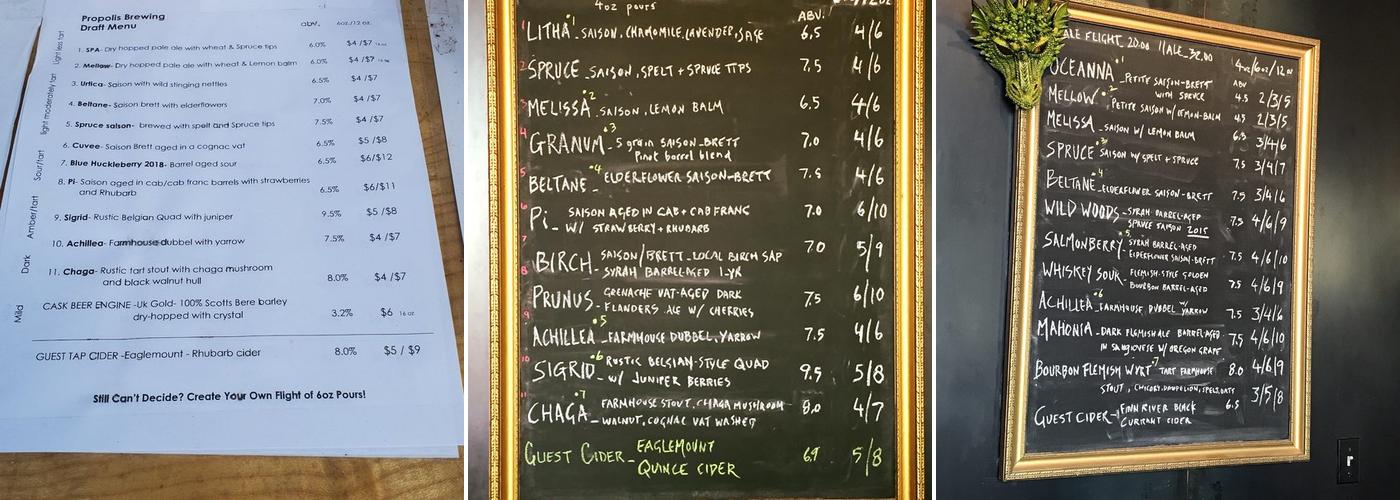 Propolis Brewing
Draft Menu
abv. 6oz/12 oz.
Light less tart
1. SPA- Dry hopped pale ale with wheat & Spruce tips 6.0% $4 /$7
2. Mellow- Dry hopped pale ale with wheat & Lemon balm 6.0% $4 /$7
3. Urtica- Saison with wild stinging nettles 6.5% $4 /$7
light moderately tart
4. Beltane- Saison brett with elderflowers 7.0% $4 /$7
5. Spruce saison- brewed with spelt and Spruce tips 7.5% $4 /$7
Sour/tart
6. Cuvee- Saison Brett aged in a cognac vat 6.5% $5 /$8
7. Blue Huckleberry 2018- Barrel aged sour 6.5% $6/$12
8. Pi- Saison aged in cab/cab franc barrels with strawberries
and Rhubarb 6.5% $6/$11
Amber/tart
9. Sigrid- Rustic Belgian Quad with juniper 9.5% $5 /$8
10. Achillea- Farmhouse dubbel with yarrow 7.5% $4 /$7
Dark
11. Chaga- Rustic tart stout with chaga mushroom
and black walnut hull 8.0% $4 /$7
Mild
CASK BEER ENGINE -Uk Gold- 100% Scotts Bere barley
dry-hopped with crystal 3.2% $6 16 oz
GUEST TAP CIDER -Eaglemount - Rhubarb cider 8.0% $5 / $9
Still Can't Decide? Create Your Own Flight of 6oz Pours!
4oz pours
ABV.
1 LITHA •1 - SAISON, CHAMOMILE, LAVENDER, SAGE 6.5 4/6
2 SPRUCE - SAISON, SPELT + SPRUCE TIPS 7.5 4/6
3 MELISSA •2 - SAISON, LEMON BALM 6.5 4/6
4 GRANUM •3 - 5 grain SAISON-BRETT 7.0 4/6
Pinot barrel blend
5 BELTANE - •4 ELDERFLOWER SAISON-BRETT 7.5 4/6
6 Pi - SAISON AGED IN CAB + CAB FRANC 7.0 6/10
W/ STRAWBERRY + RHUBARB
7 BIRCH - SAISON/BRETT - LOCAL BIRCH SAP 7.0 5/9
SYRAH BARREL-AGED 1-YR
8 PRUNUS - GRENACHE VAT-AGED DARK 7.5 6/10
FLANDERS ALE W/ CHERRIES
9 ACHILLEA •5 - FARMHOUSE DUBBEL, YARROW 7.5 4/6
10 SIGRID •6 - RUSTIC BELGIAN-STYLE QUAD 9.5 5/8
W/ JUNIPER BERRIES
11 CHAGA •7 - FARMHOUSE STOUT, CHAGA MUSHROOM 8.0 4/7
WALNUT, COGNAC VAT WASHED
GUEST CIDER - EAGLEMOUNT 6.9 5/8
QUINCE CIDER
ALE FLIGHT 20.00 11ALE 32.00
4oz/6oz/12oz
ABV
OCEANNA •1 - PETITE SAISON-BRETT 4.5 2/3/5
WITH SPRUCE
MELLOW •2 - PETITE SAISON W/ LEMON-BALM 4.5 2/3/5
MELISSA - SAISON W/ LEMON BALM 6.5 3/4/6
SPRUCE •3 SAISON W/ SPELT + SPRUCE 7.5 3/4/7
BELTANE •4 - ELDERFLOWER SAISON-BRETT 7.5 3/4/6
WILD WOODS - SYRAH BARREL-AGED 7.5 4/6/9
SPRUCE SAISON 2015
SALMONBERRY •5 - SYRAH BARREL-AGED 7.5 4/6/10
ELDERFLOWER SAISON-BRETT
WHISKEY SOUR - FLEMISH-STYLE GOLDEN 7.5 4/6/9
BOURBON BARREL-AGED
ACHILLEA •6 - FARMHOUSE DUBBEL W/ YARROW 7.5 3/4/6
MAHONIA - DARK FLEMISH ALE BARREL-AGED 7.5 4/6/10
IN SANGIOVESE W/ OREGON GRAPE
BOURBON FLEMISH WYRT •7 TART FARMHOUSE 8.0 4/6/9
STOUT, CHICORY, DANDELION, SPELT, OATS
GUEST CIDER - FINN RIVER BLACK 6.5 3/5/8
CURRANT CIDER